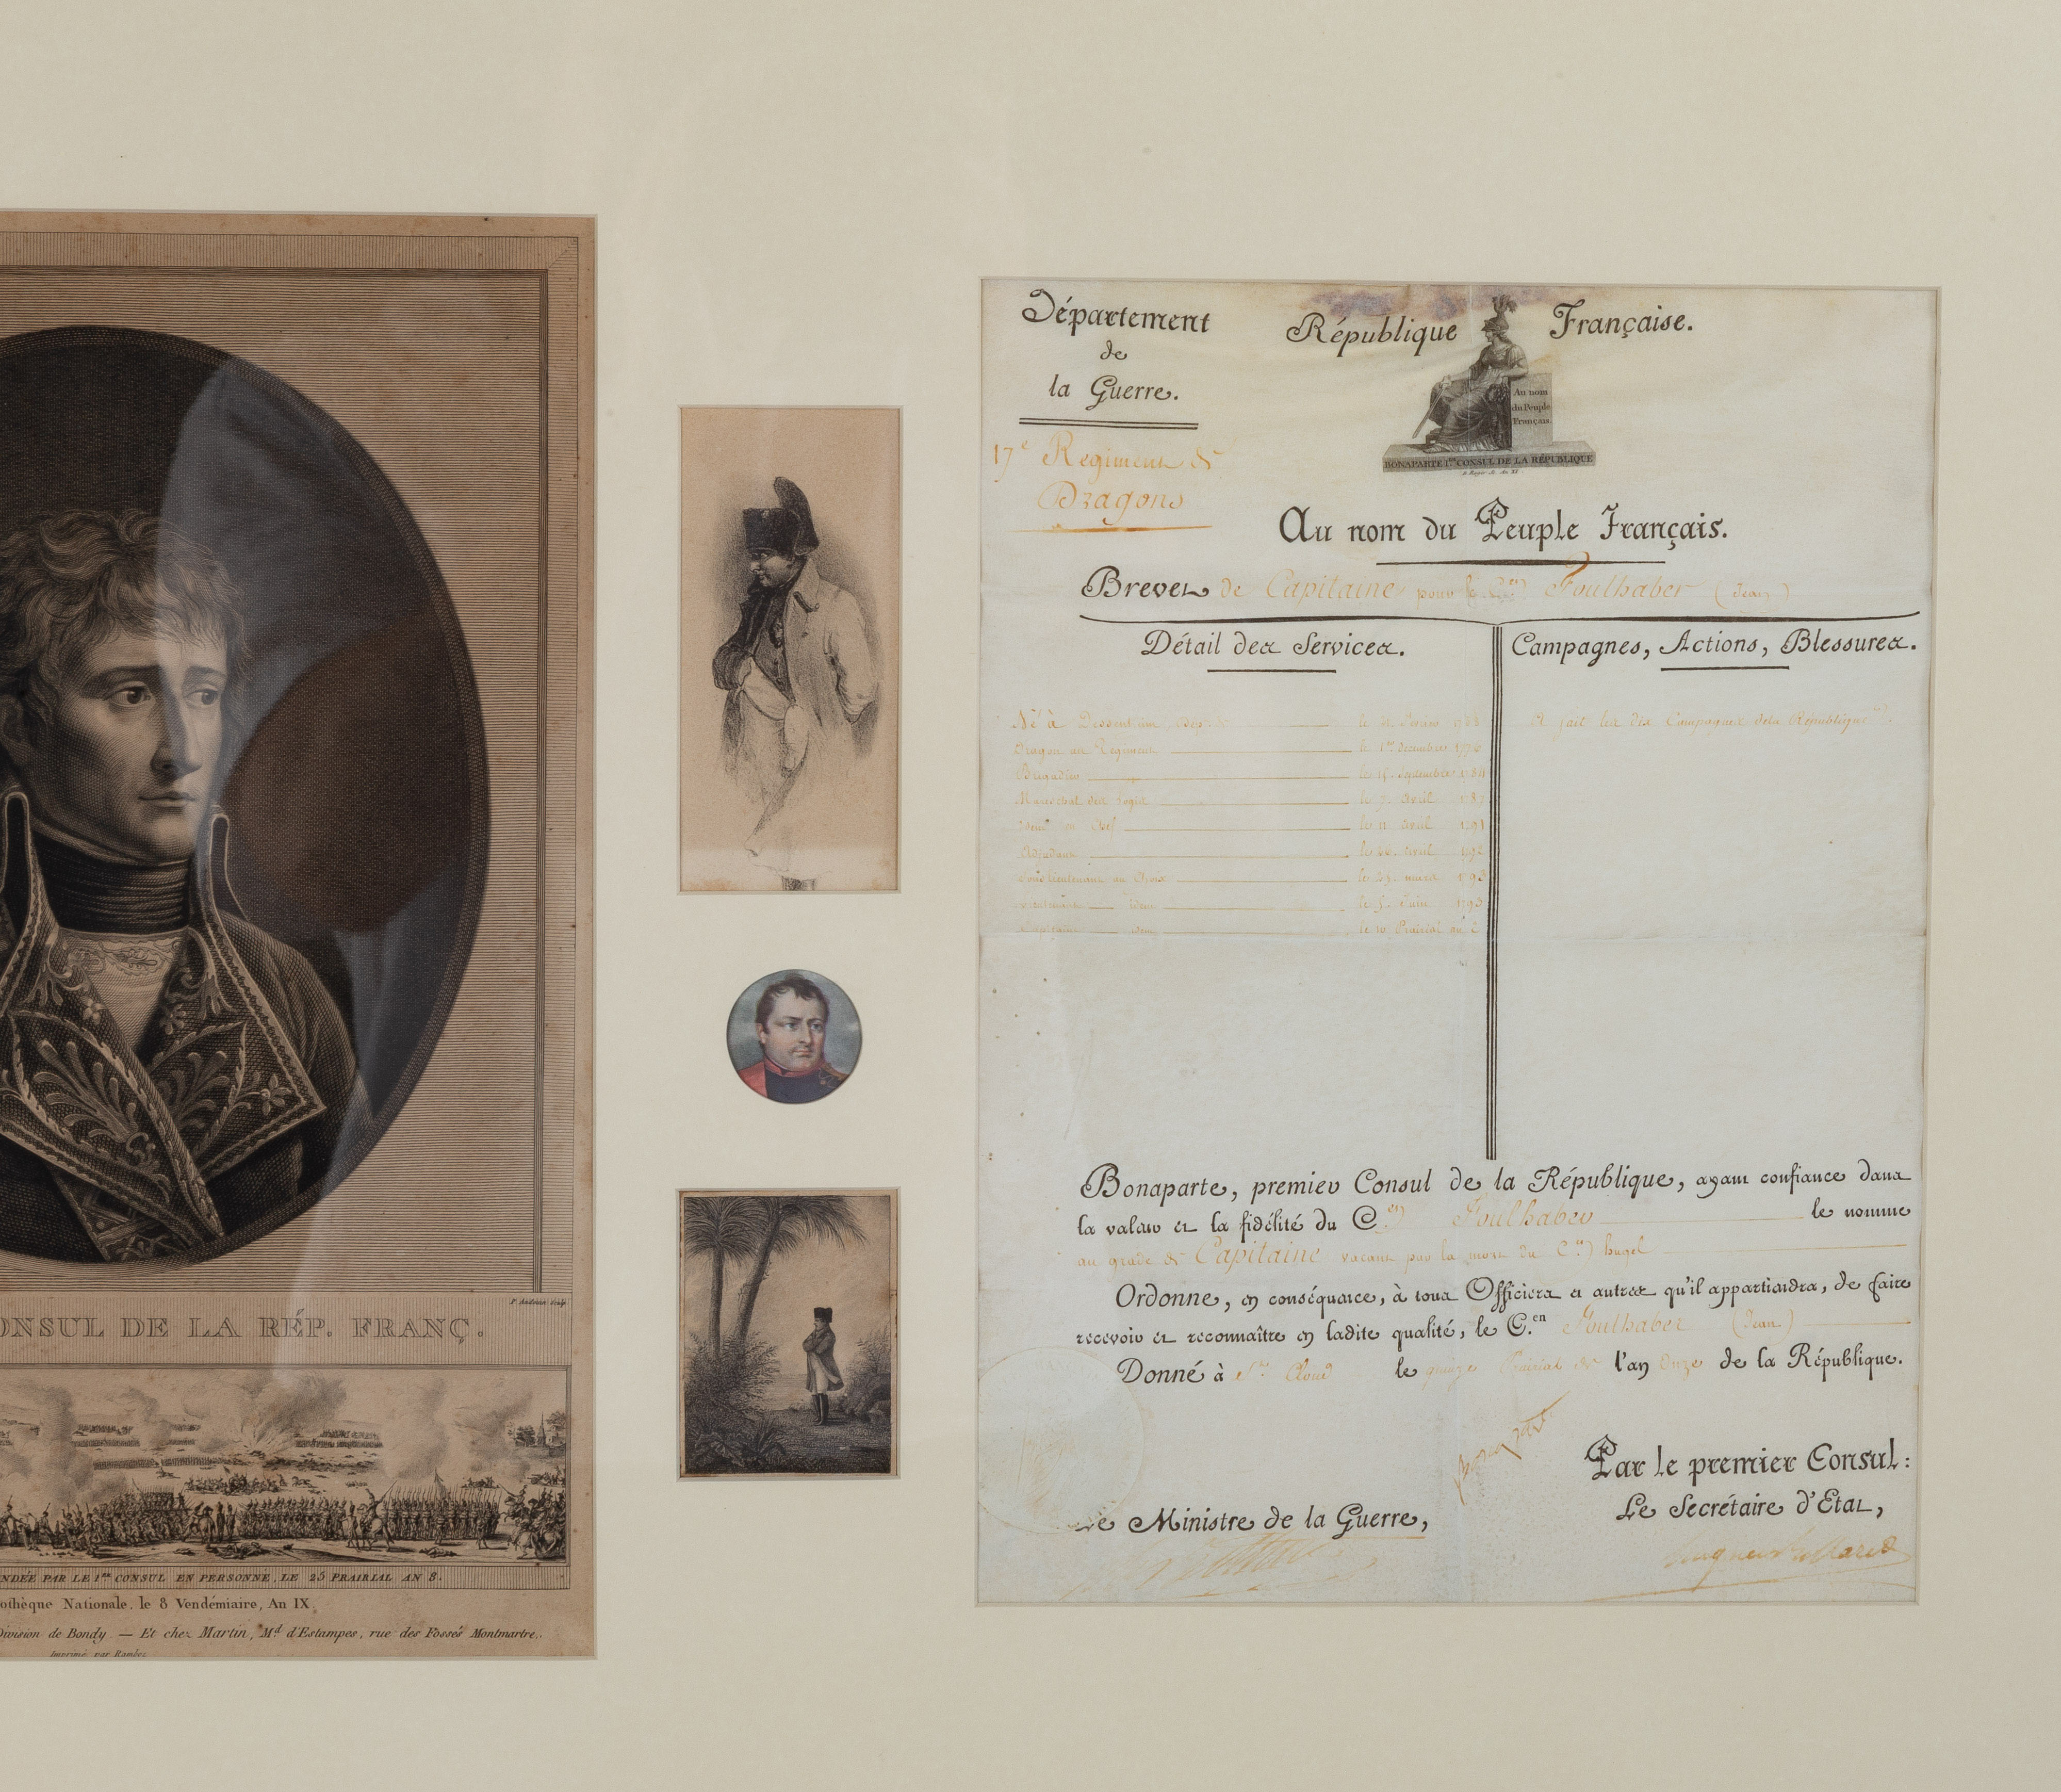 P. Audouin sculp.
ONSUL DE LA RÉP. FRANÇ.
NDÉE PAR LE 1er CONSUL EN PERSONNE, LE 25 PRAIRIAL AN 8.
othèque Nationale, le 8 Vendémiaire, An IX.
Division de Bondy — Et chez Martin, Md d'Estampes, rue des Fossés Montmartre.
Imprimé par
Département
de
la Guerre.
17e Regiment de
Dragons
République Française.
Au nom
du Peuple
Français.
BONAPARTE 1er CONSUL DE LA RÉPUBLIQUE
Au nom du Peuple Français.
Brevet de Capitaine pour le Cen Foulhaber (Jean)
Détail des Services.
Campagnes, Actions, Blessures.
Né à le Février
Dragon au Régiment le 1er Décembre 1776
Brigadier le 15 Septembre 1784
Maréchal des Logis le 7 Avril
en Chef le 11 Avril 1791
Adjudant le 26 Avril 1792
Sous lieutenant au Choix le mars 1793
Lieutenant Idem le 5 Juin 1793
Capitaine idem le 10 Prairial an 2
A fait les dix Campagnes de la République
Bonaparte, premier Consul de la République, ayant confiance dans
la valeur et la fidélité du Cen Foulhaber le nomme
au grade de Capitaine vacant par la mort du Cen hugel
Ordonne, en conséquence, à tous Officiers et autres qu'il appartiendra, de faire
recevoir et reconnaître en ladite qualité, le C.en Foulhaber (Jean)
Donné à St. Cloud le quinze Prairial de l'an Onze de la République.
Bonaparte
Par le premier Consul:
Le Secrétaire d'Etat,
Le Ministre de la Guerre,
Hugues B. Maret